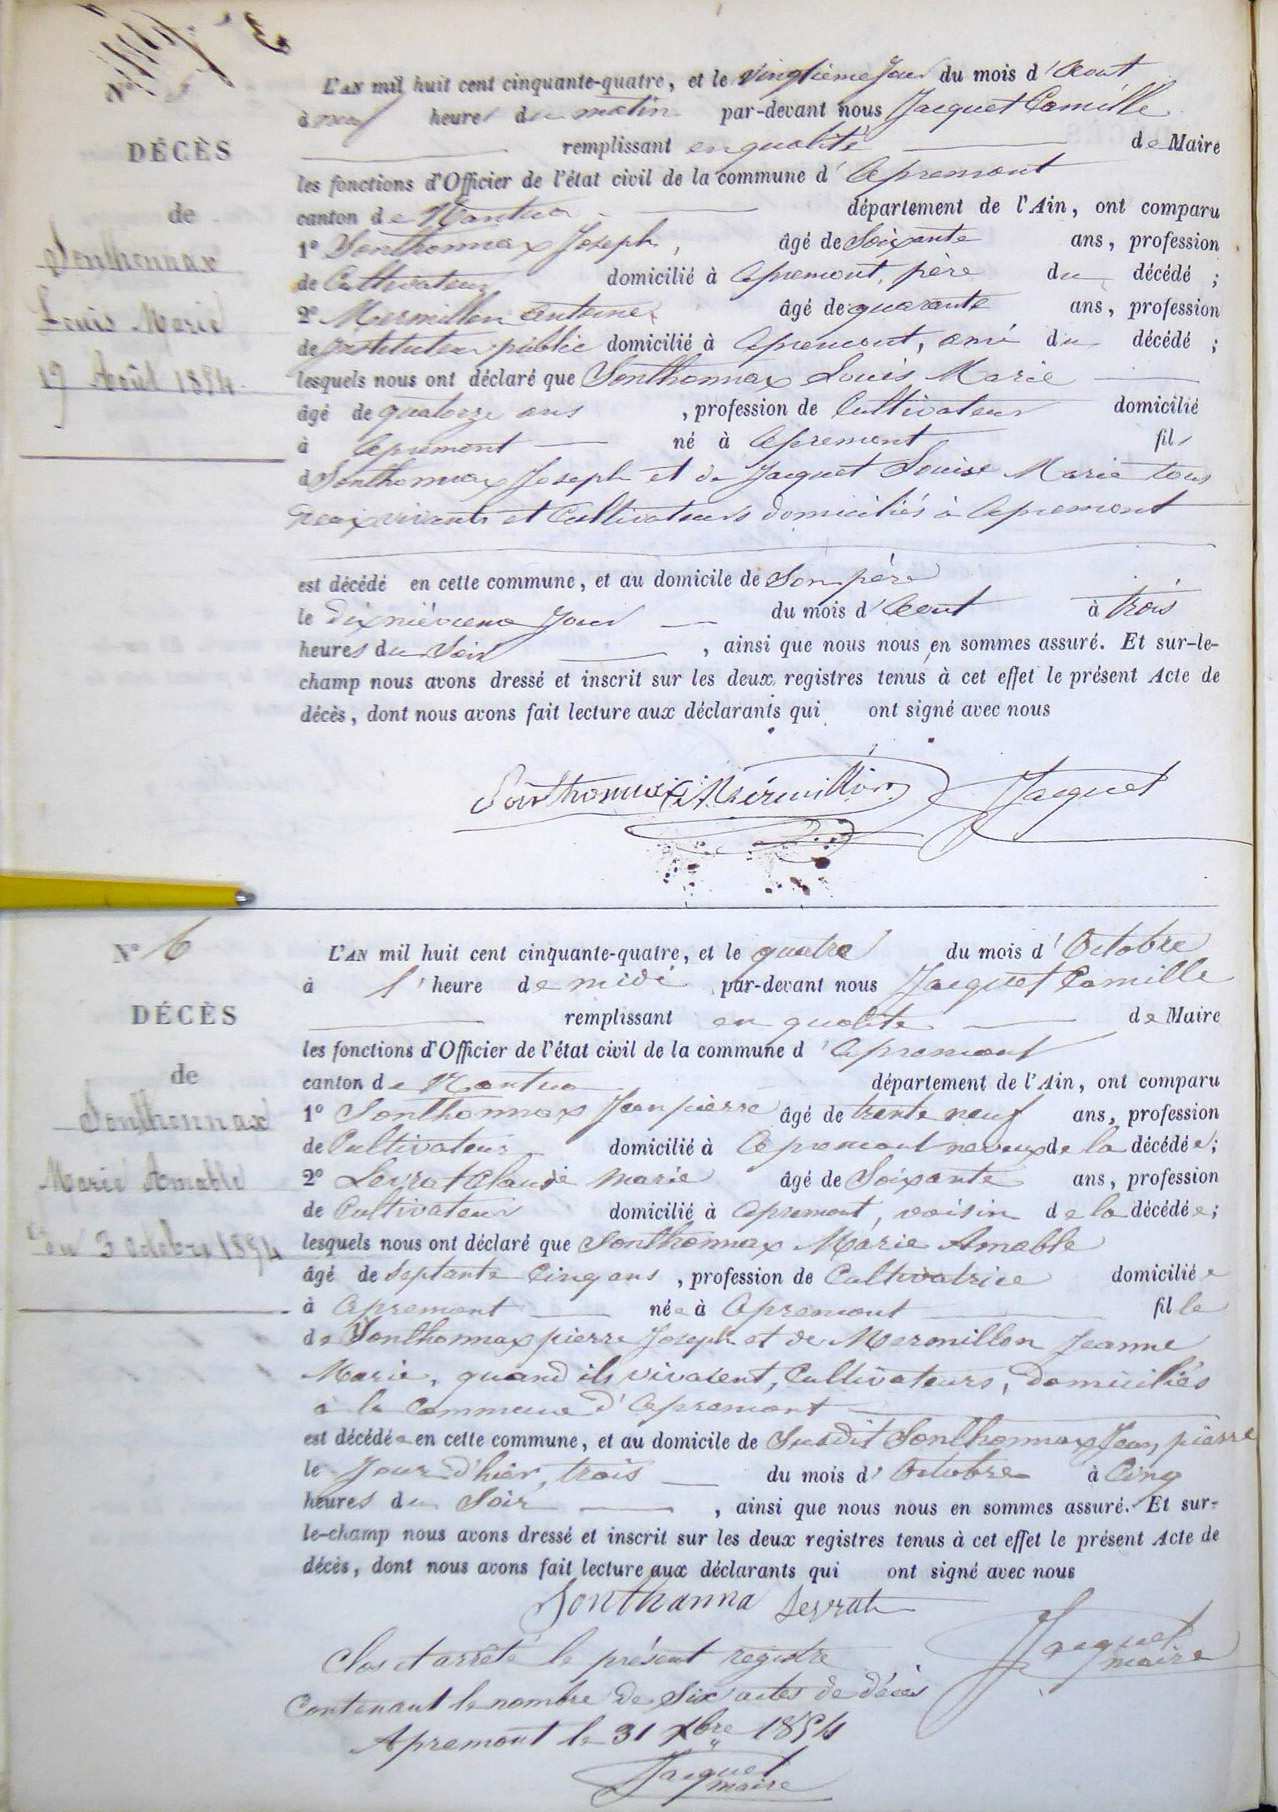 N°
DÉCÈS
de
Sonthonnax
Louis Marie
19 Août 1854
L'AN mil huit cent cinquante-quatre, et le vingtième jour du mois d'Aout
à neuf heures du matin par-devant nous Jacquet Camille
remplissant en qualité de Maire
les fonctions d'Officier de l'état civil de la commune d'Apremont
canton de Nantua département de l'Ain, ont comparu
1° Sonthonnax Joseph, âgé de Soixante ans, profession
de Cultivateur domicilié à Apremont, père du décédé ;
2° Mermillon Antoine âgé de quarante ans, profession
de instituteur public domicilié à Apremont, ami du décédé ;
lesquels nous ont déclaré que Sonthonnax Louis Marie
âgé de quatorze ans, profession de Cultivateur domicilié
à Apremont né à Apremont fils
d Sonthonnax Joseph et de Jacquet Louise Marie tous
deux vivants et Cultivateurs domiciliés à Apremont
est décédé en cette commune, et au domicile de Son père
le dix neuvième Jour du mois d'Aout à trois
heures du Soir, ainsi que nous nous en sommes assuré. Et sur-le-
champ nous avons dressé et inscrit sur les deux registres tenus à cet effet le présent Acte de
décès, dont nous avons fait lecture aux déclarants qui ont signé avec nous
Sonthonnax Mérmillon Jacquet
N° 6
DÉCÈS
de
Sonthonnax
Marie Amable
du 3 octobre 1854
L'AN mil huit cent cinquante-quatre, et le quatre du mois d'Octobre
à l'heure de midi par-devant nous Jacquet Camille
remplissant en qualité de Maire
les fonctions d'Officier de l'état civil de la commune d'Apremont
canton de Nantua département de l'Ain, ont comparu
1° Sonthonnax Jean pierre âgé de trente neuf ans, profession
de Cultivateur domicilié à Apremont neveux de la décédée ;
2° Leyrat Claude Marie âgé de Soixante ans, profession
de Cultivateur domicilié à Apremont, voisin de la décédée ;
lesquels nous ont déclaré que Sonthonnax Marie Amable
âgé de Septante Cinq ans, profession de Cultivatrice domiciliée
à Apremont née à Apremont fille
de Sonthonnax pierre Joseph et de Mermillon Jeanne
Marie, quand ils vivaient, Cultivateurs, domiciliés
à la Commune d'Apremont
est décédée en cette commune, et au domicile de Susdit Sonthonnax Jean pierre
le Jour d'hier, trois du mois d'Octobre à Cinq
heures du Soir, ainsi que nous nous en sommes assuré. Et sur-
le-champ nous avons dressé et inscrit sur les deux registres tenus à cet effet le présent Acte de
décès, dont nous avons fait lecture aux déclarants qui ont signé avec nous
Sonthanna Leyrat
Jacquet
maire
Clos et arrêté le présent registre
Contenant le nombre de Six actes de décès
Apremont le 31 Xbre 1854
Jacquet
maire